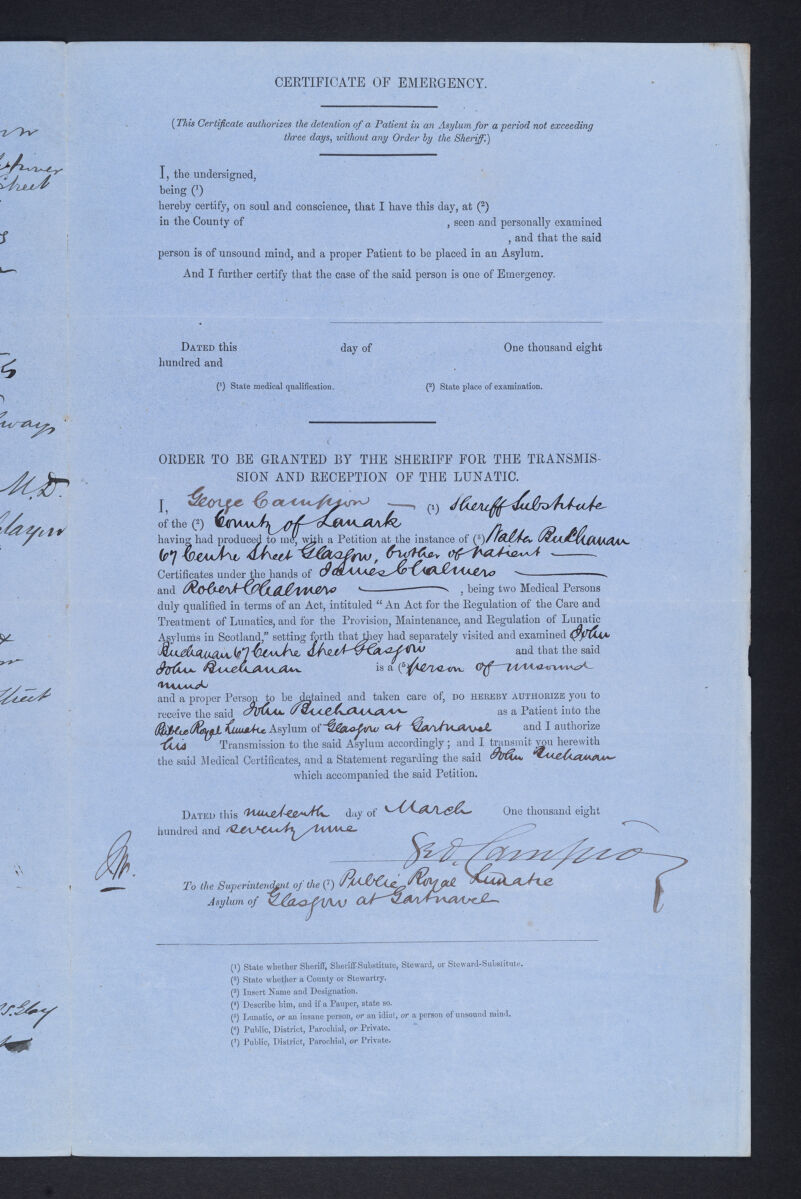 CERTIFICATE OF EMERGENCY.
(This Certificate authorizes the detention of a Patient in an Asylum for a period not exceeding
three days, without any Order by the Sheriff.)
I, the undersigned,
being (¹)
hereby certify, on soul and conscience, that I have this day, at (²)
in the County of , seen and personally examined
, and that the said
person is of unsound mind, and a proper Patient to be placed in an Asylum.
And I further certify that the case of the said person is one of Emergency.
DATED this day of One thousand eight
hundred and
(¹) State medical qualification. (²) State place of examination.
ORDER TO BE GRANTED BY THE SHERIFF FOR THE TRANSMIS-
SION AND RECEPTION OF THE LUNATIC.
I, George Campion — (¹) Sheriff Substitute
of the (²) County of Lanark
having had produced to me, with a Petition at the instance of (³) Walter Buchanan
67 Centre Street Glasgow, brother of patient —
Certificates under the hands of James Chalmers —
and Robert Chalmers — , being two Medical Persons
duly qualified in terms of an Act, intituled "An Act for the Regulation of the Care and
Treatment of Lunatics, and for the Provision, Maintenance, and Regulation of Lunatic
Asylums in Scotland," setting forth that they had separately visited and examined John
Buchanan 67 Centre Street Glasgow and that the said
John Buchanan is a (⁵ person of unsound
mind
and a proper Person to be detained and taken care of, DO HEREBY AUTHORIZE you to
receive the said John Buchanan as a Patient into the
Public Royal Lunatic Asylum of Glasgow at Gartnavel and I authorize
his Transmission to the said Asylum accordingly; and I transmit you herewith
the said Medical Certificates, and a Statement regarding the said John Buchanan
which accompanied the said Petition.
DATED this nineteenth day of March One thousand eight
hundred and seventy nine
Geo. Campion
To the Superintendent of the (⁷) Public Royal Lunatic
Asylum of Glasgow at Gartnavel
(¹) State whether Sheriff, Sheriff-Substitute, Steward, or Steward-Substitute.
(²) State whether a County or Stewartry.
(³) Insert Name and Designation.
(⁴) Describe him, and if a Pauper, state so.
(⁵) Lunatic, or an insane person, or an idiot, or a person of unsound mind.
(⁶) Public, District, Parochial, or Private.
(⁷) Public, District, Parochial, or Private.
Street
M.D.
Street